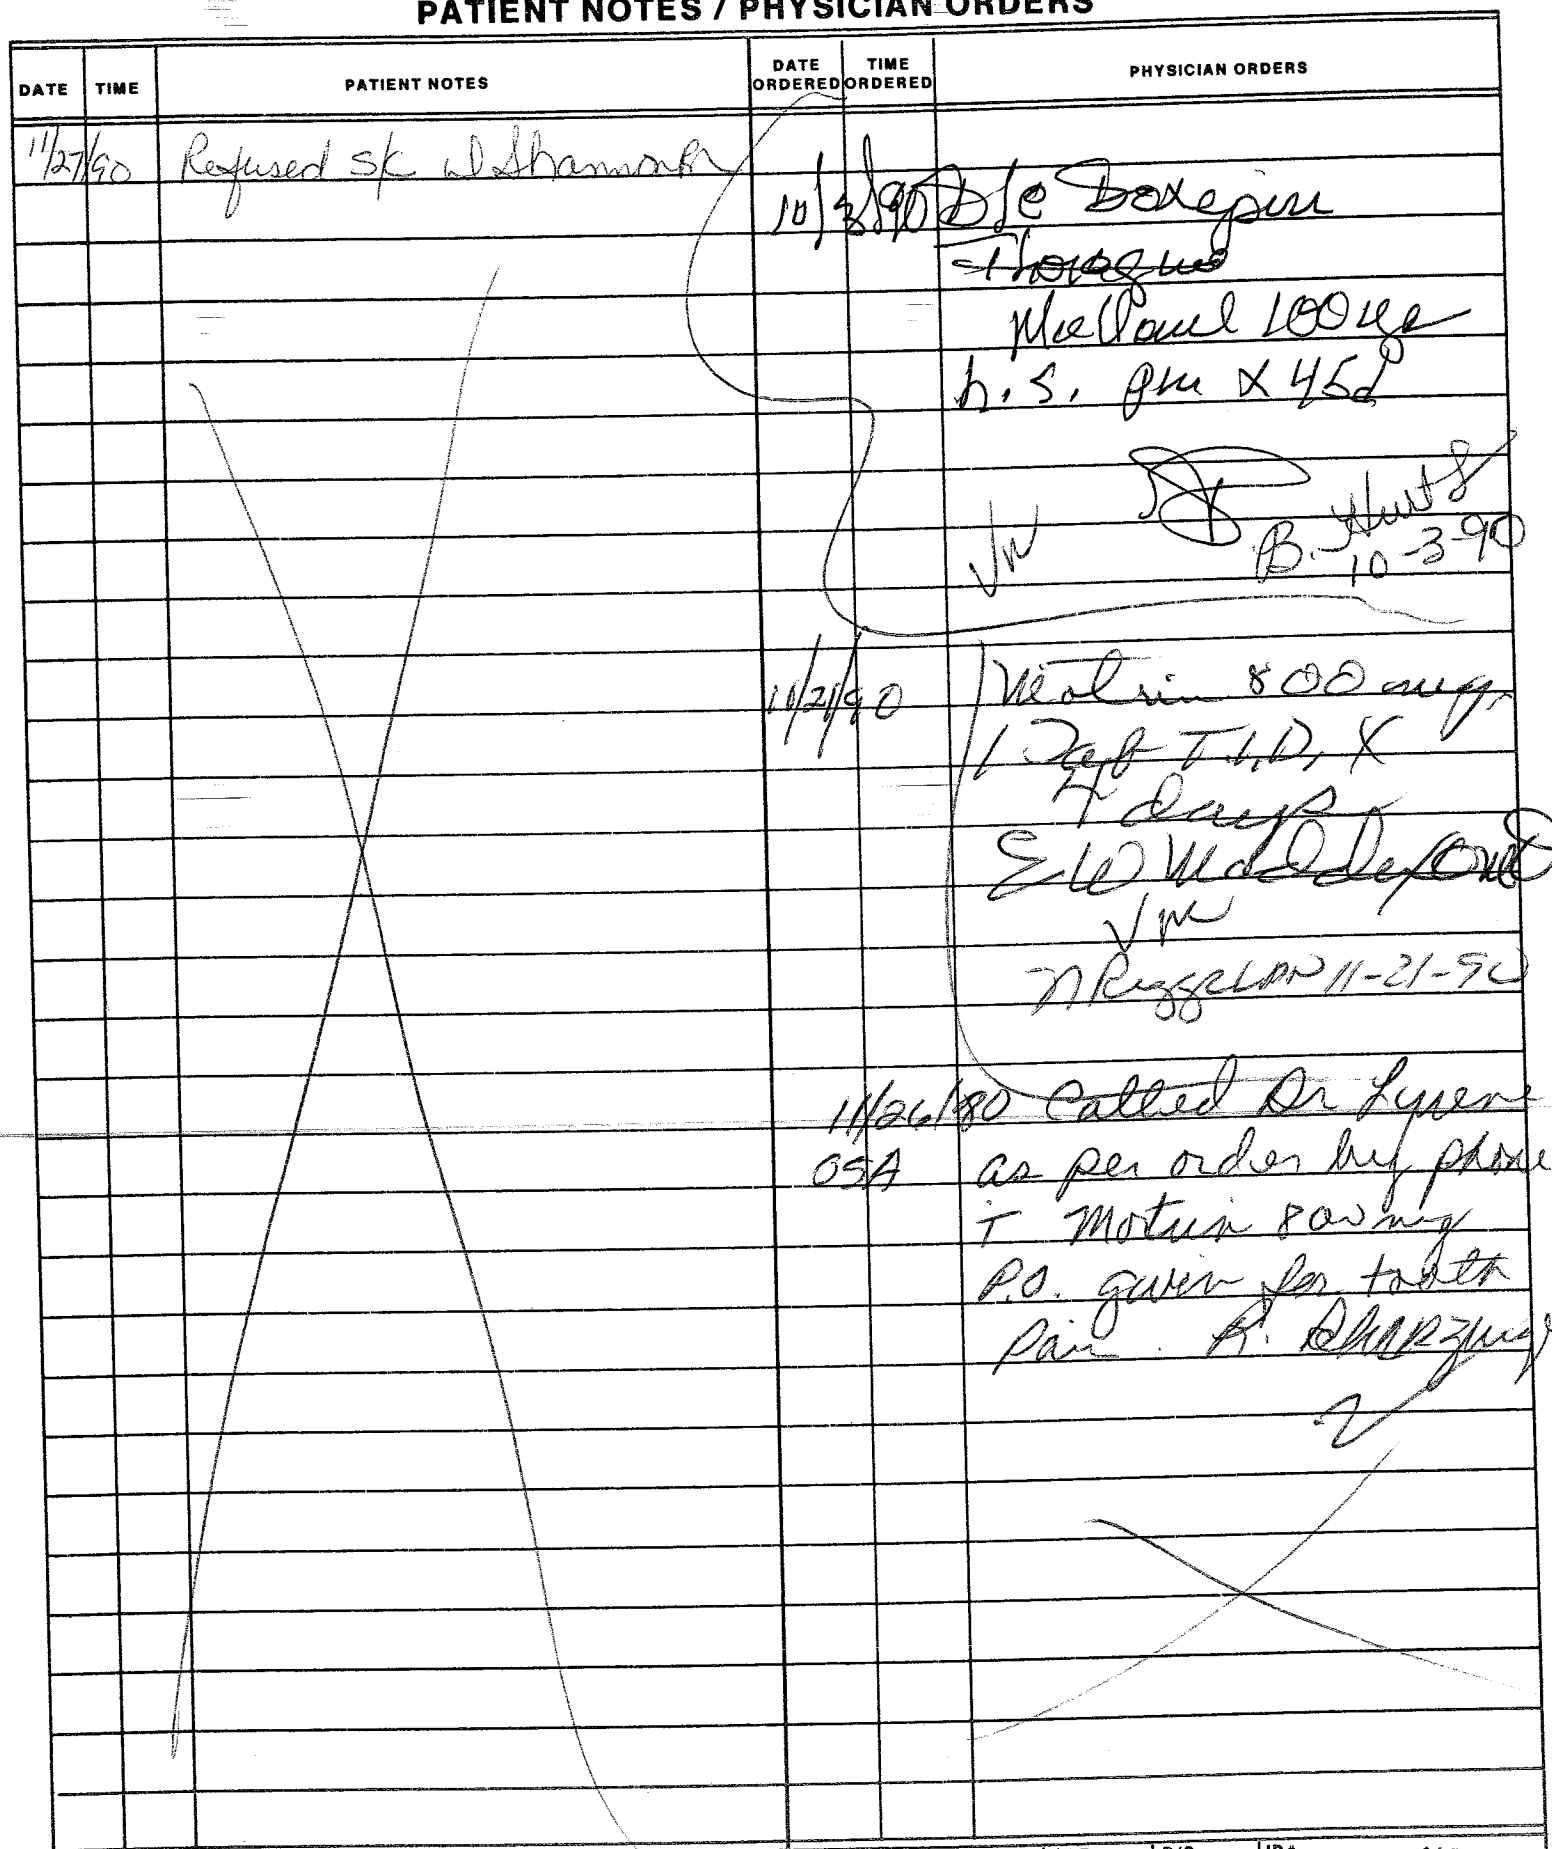 PATIENT NOTES / PHYSICIAN ORDERS
DATE TIME PATIENT NOTES DATE ORDERED TIME ORDERED PHYSICIAN ORDERS
11/27/90 Refused s/c
10/3/90 D/C Doxepin
Mellaril 100
h.s. x 45d
B. Hurt
10-3-90
11/21/90 Motrin 800 mg.
1 Tab T.I.D, X
4 days
E W Maddox
N Riggs LPN 11-21-90
11/26/90 Called Dr Lyrene
05A as per order by phone
T Motrin 800 mg
P.O. given for tooth
Pain. R.